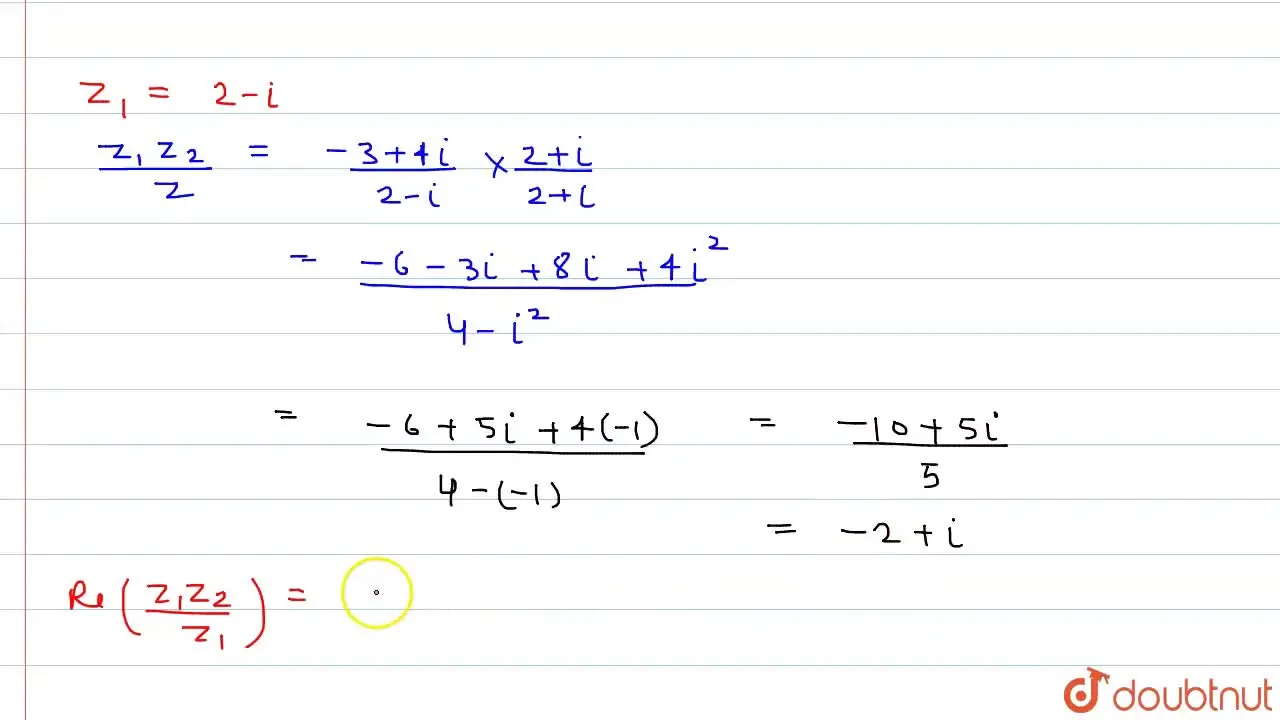 z₁ = 2-i
z₁ z₂ / z = -3+4i / 2-i × 2+i / 2+i
= -6 - 3i + 8i + 4i² / 4 - i²
= -6 + 5i + 4(-1) / 4 - (-1) = -10 + 5i / 5
= -2 + i
Re (z₁z₂ / z₁) =
doubtnut